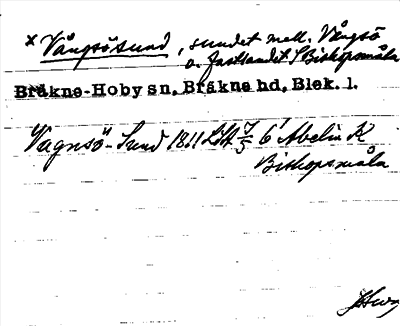 x Vångsösund, sundet mell. Vångsö
o. fastlandet S Biskopsmåla
Bräkne-Hoby sn, Bräkne hd, Blek. l.
Vagnsö-Sund 1811 LSA 6 Abelin K
Biskopsmåla